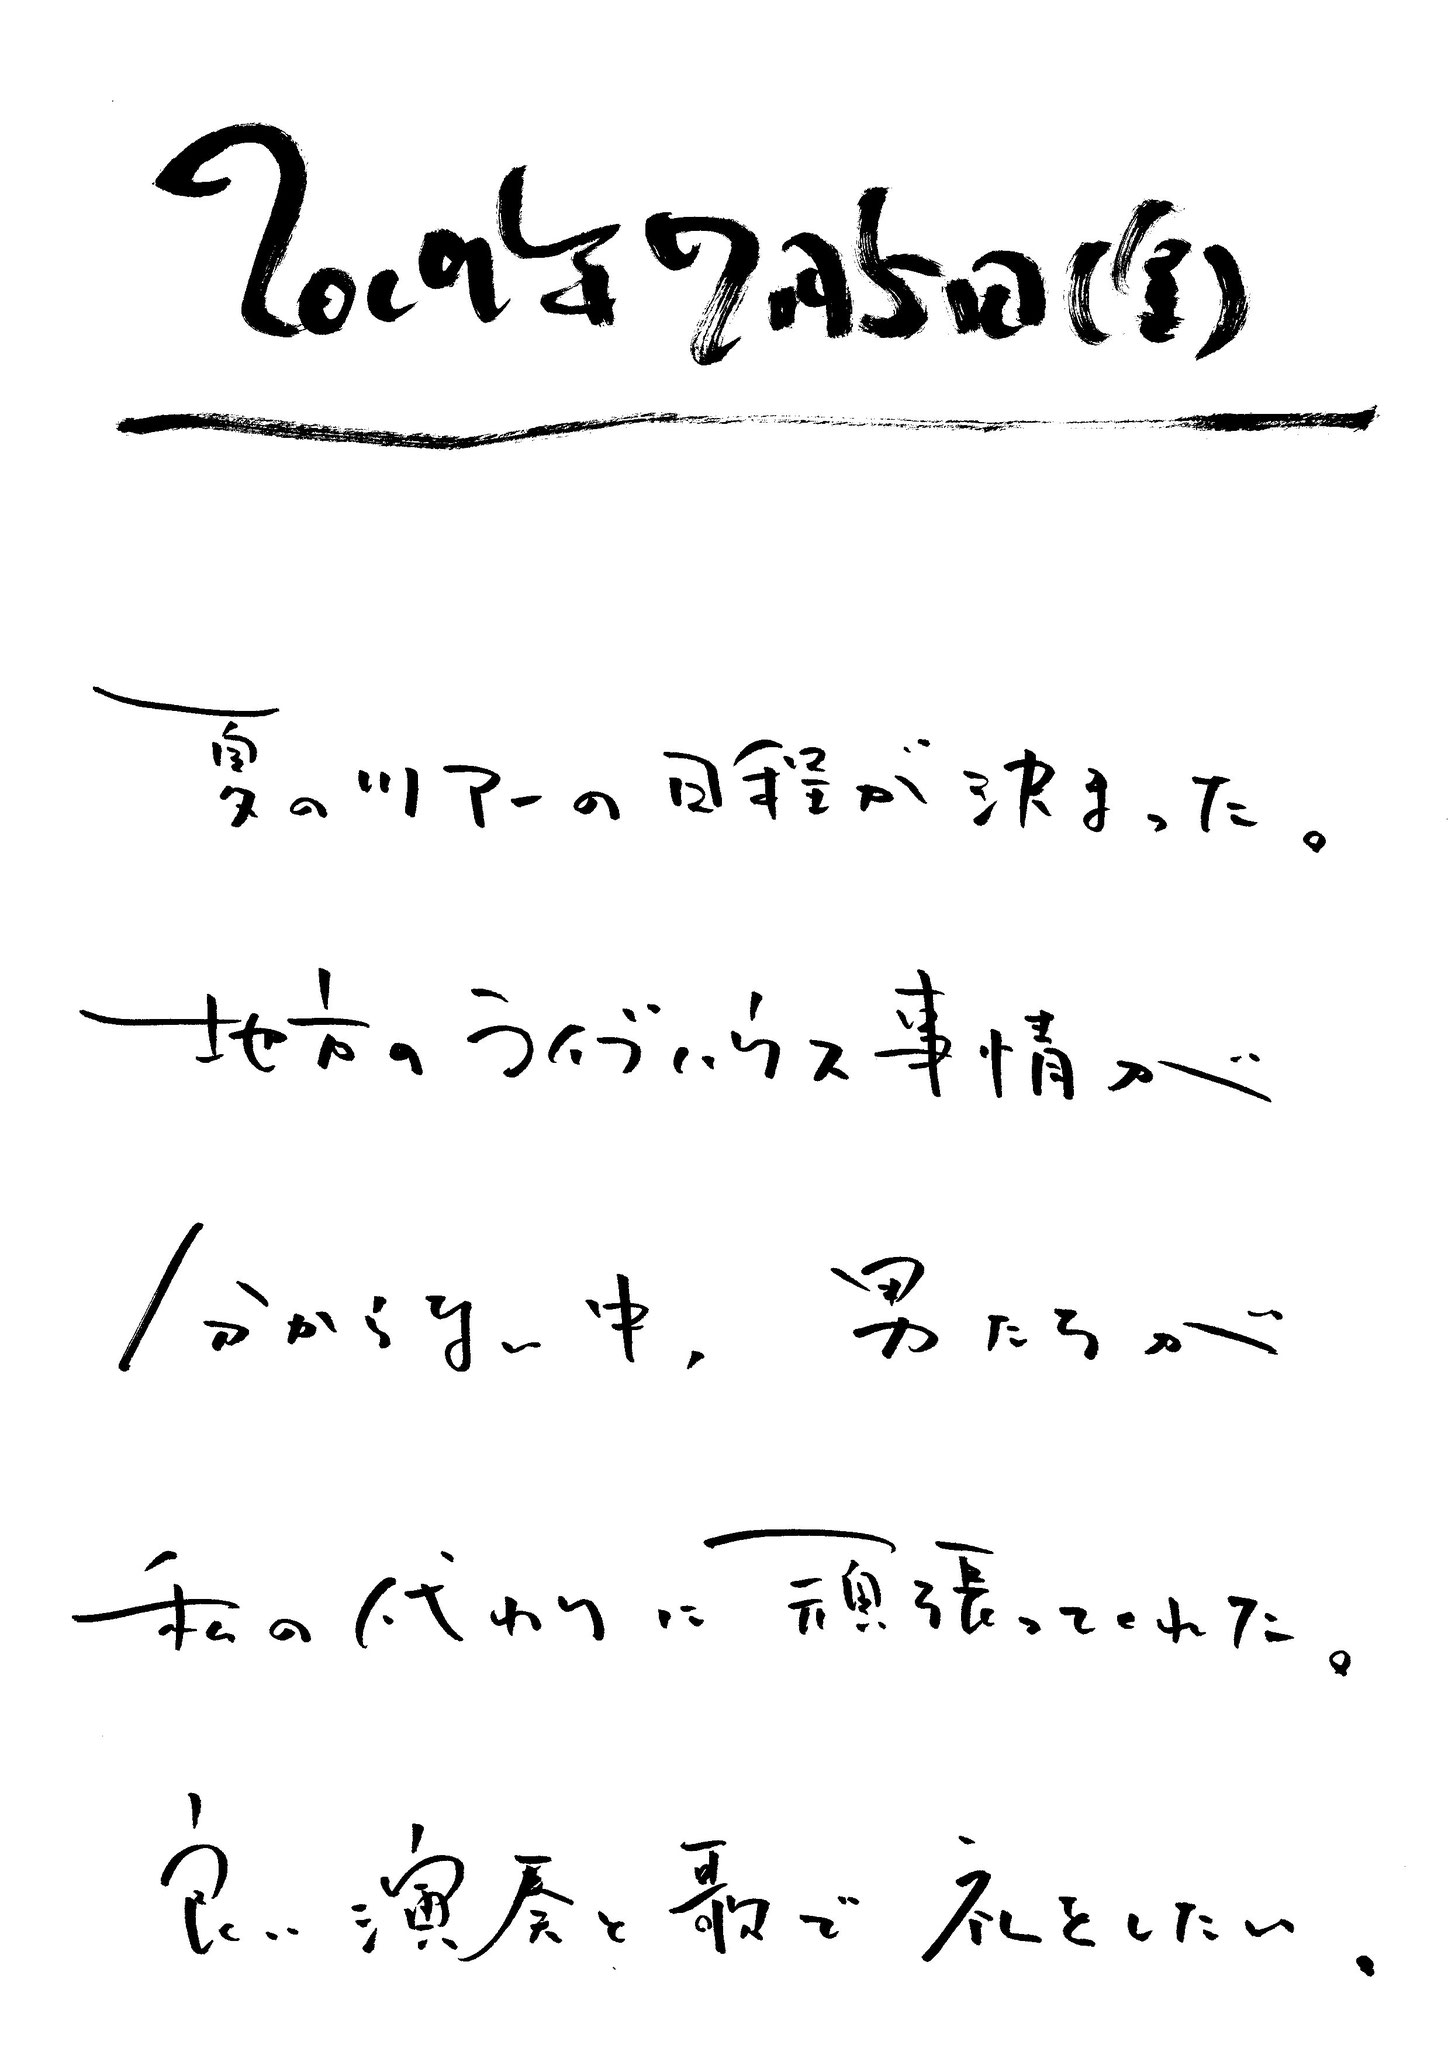 2019年7月5日(金)
夏のツアーの日程が決まった。
地方のライブハウス事情が
分からない中、男たちが
私の代わりに頑張ってくれた。
良い演奏と歌で礼をしたい.